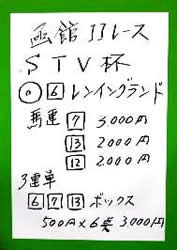 函館11レース
STV杯
◎ 6 レインイングランド
馬連 7 3000円
13 2000円
12 2000円
3連単
6 7 13 ボックス
500円×6点 3.000円